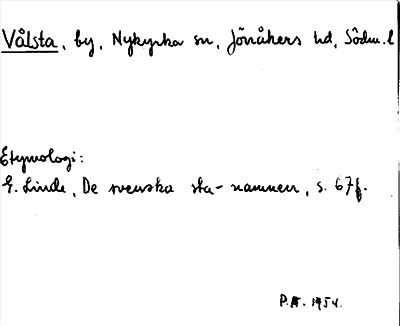 Vålsta, by, Nykyrka sn, Jönåkers hd, Södm.l
Etymologi:
E. Linde, De svenska sta-namnen, s. 67f.
P.A. 1954.